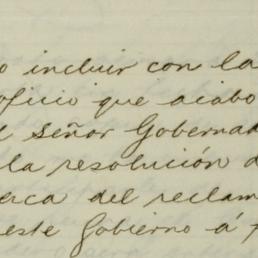 o incluir con la
oficio que acabo
l señor Gobernad
la resolución d
erca del reclam
este Gobierno á